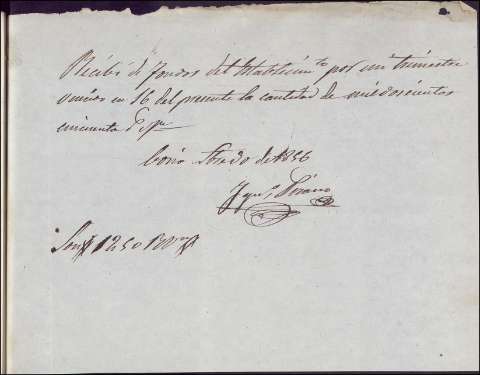 Recibí de fondos del Establecim.to por un trimestre
en 16 del presente la cantidad de mil doscientos
cincuenta
de 1856
Ygn.º
Son 1250